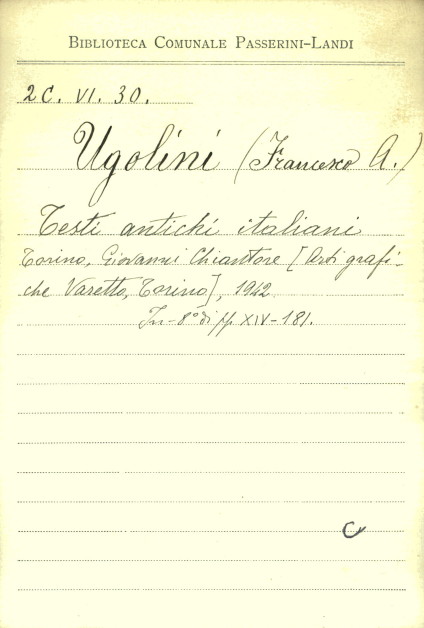 BIBLIOTECA COMUNALE PASSERINI-LANDI
2C. VI. 30.
Ugolini (Francesco A.)
Testi antichi italiani
Torino, Giovanni Chiantore [Arti grafi-
che Varetto, Torino], 1942
In-8° di pp XIV-181.
C